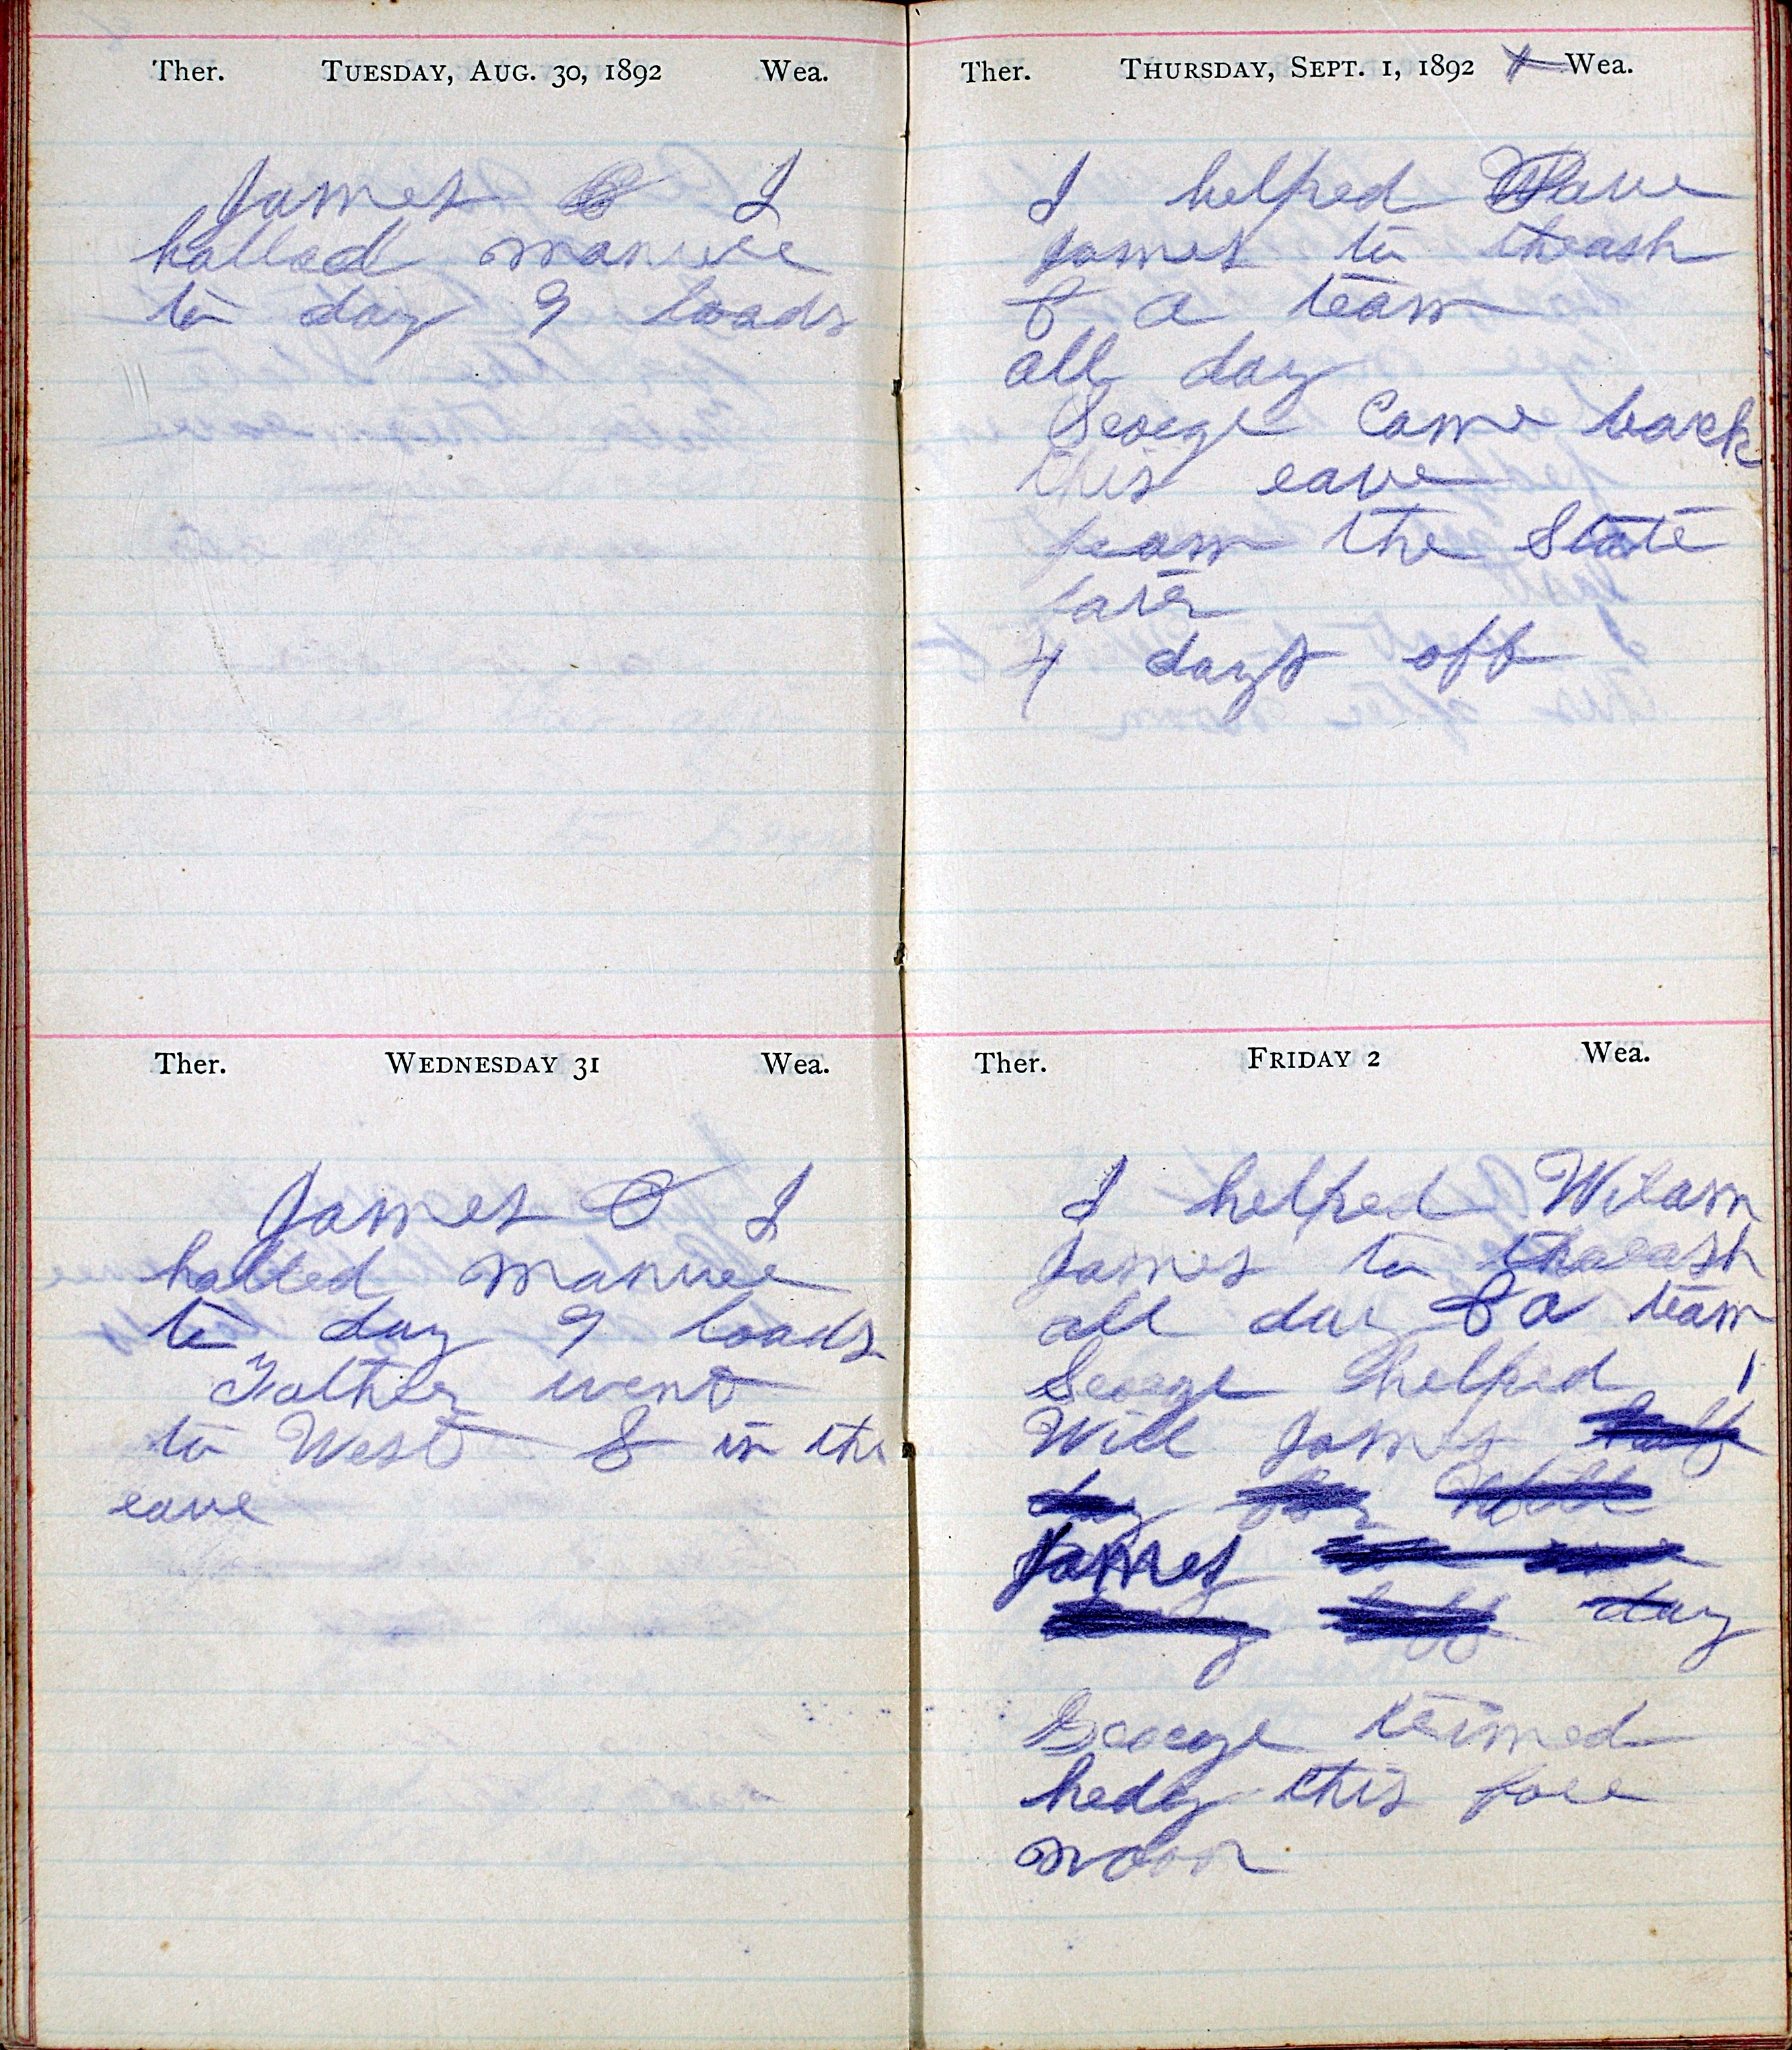 Ther. TUESDAY, AUG. 30, 1892 Wea.
James & I
halled manure
to day 9 loads
Ther. WEDNESDAY 31 Wea.
James & I
halled manure
to day 9 loads
Father went
to West & in the
eave
Ther. THURSDAY, SEPT. 1, 1892 Wea.
I helped Dave
James to thrash
& a team
all day
George Came back
this eave
from the State
fair
4 days off
Ther. FRIDAY 2 Wea.
I helped Wilson
James to thrash
all day & a team
George helped
Will James half
day Will
James
day
George trimed
hedg this fore
noon